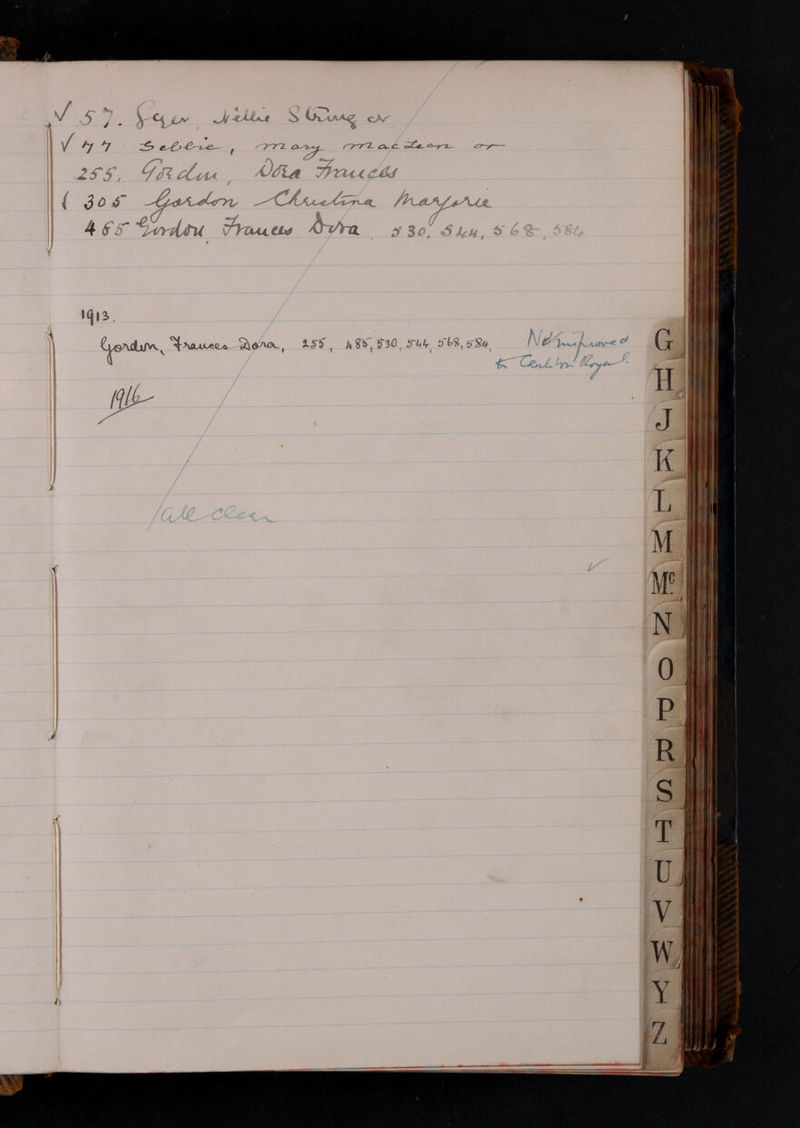 √ 57. Nellie
√ 77. Gebbie, Mary Maclean or
255, Gordon, Dora Frances
{ 305 Gordon Christina Marjorie
485 Gordon Frances Dora 530, 544, 568, 584
1913.
Gordon, Frances Dora, 255, 485, 530, 544, 568, 584,
to Royal
1916
all clear
✓
G
H
J
K
L
M
Mc
N
O
P
R
S
T
U
V
W
Y
Z